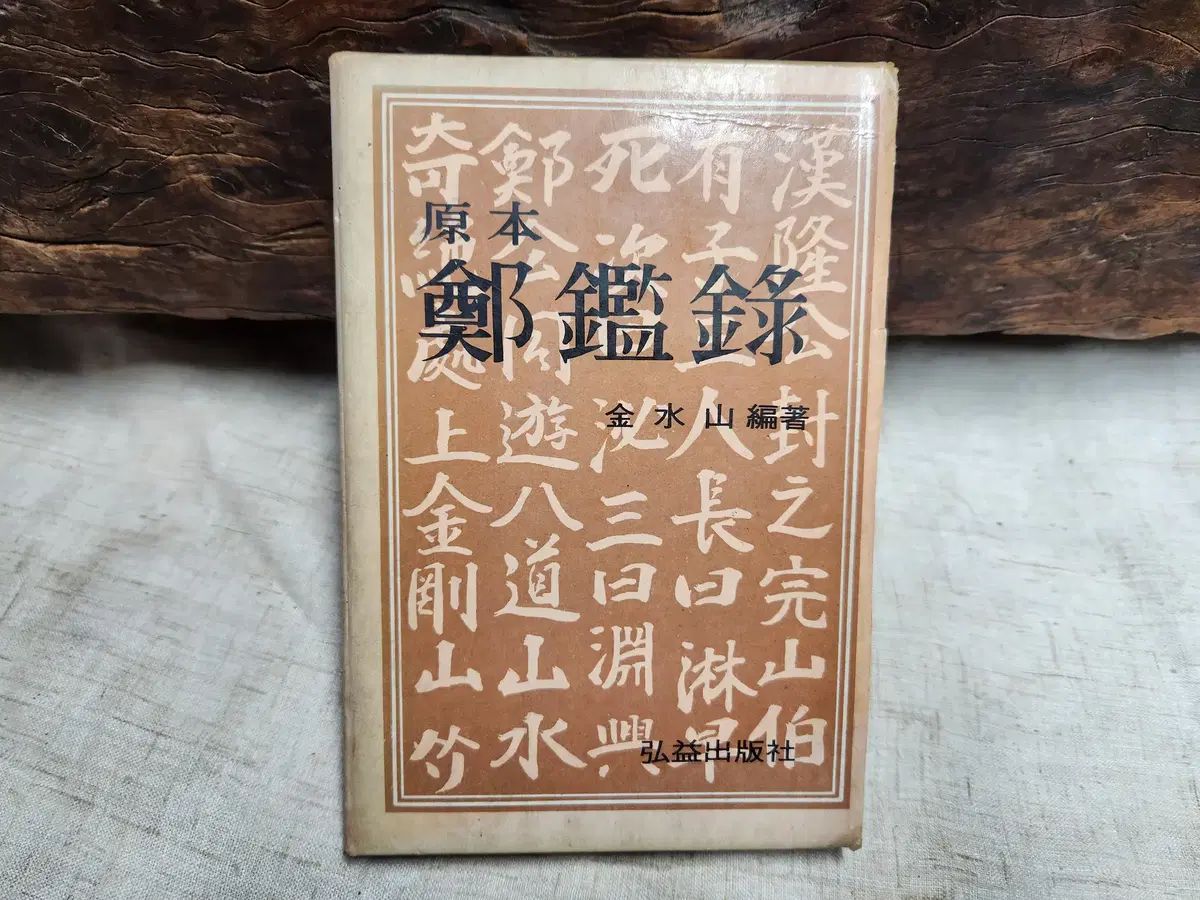 原本
鄭鑑錄
金水山 編著
弘益出版社
漢隆公封之完山伯
有子三人長曰淋早
死次沁三曰淵與
鄭公同遊八道山水
奇絶處上金剛山竹